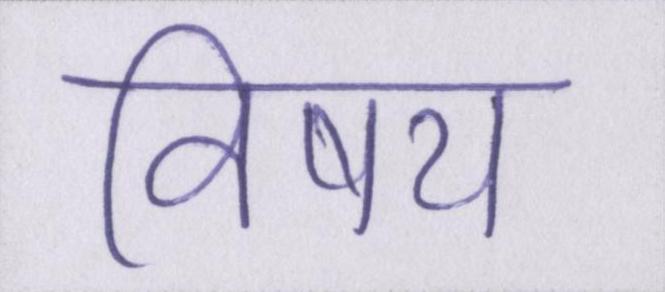 विषय